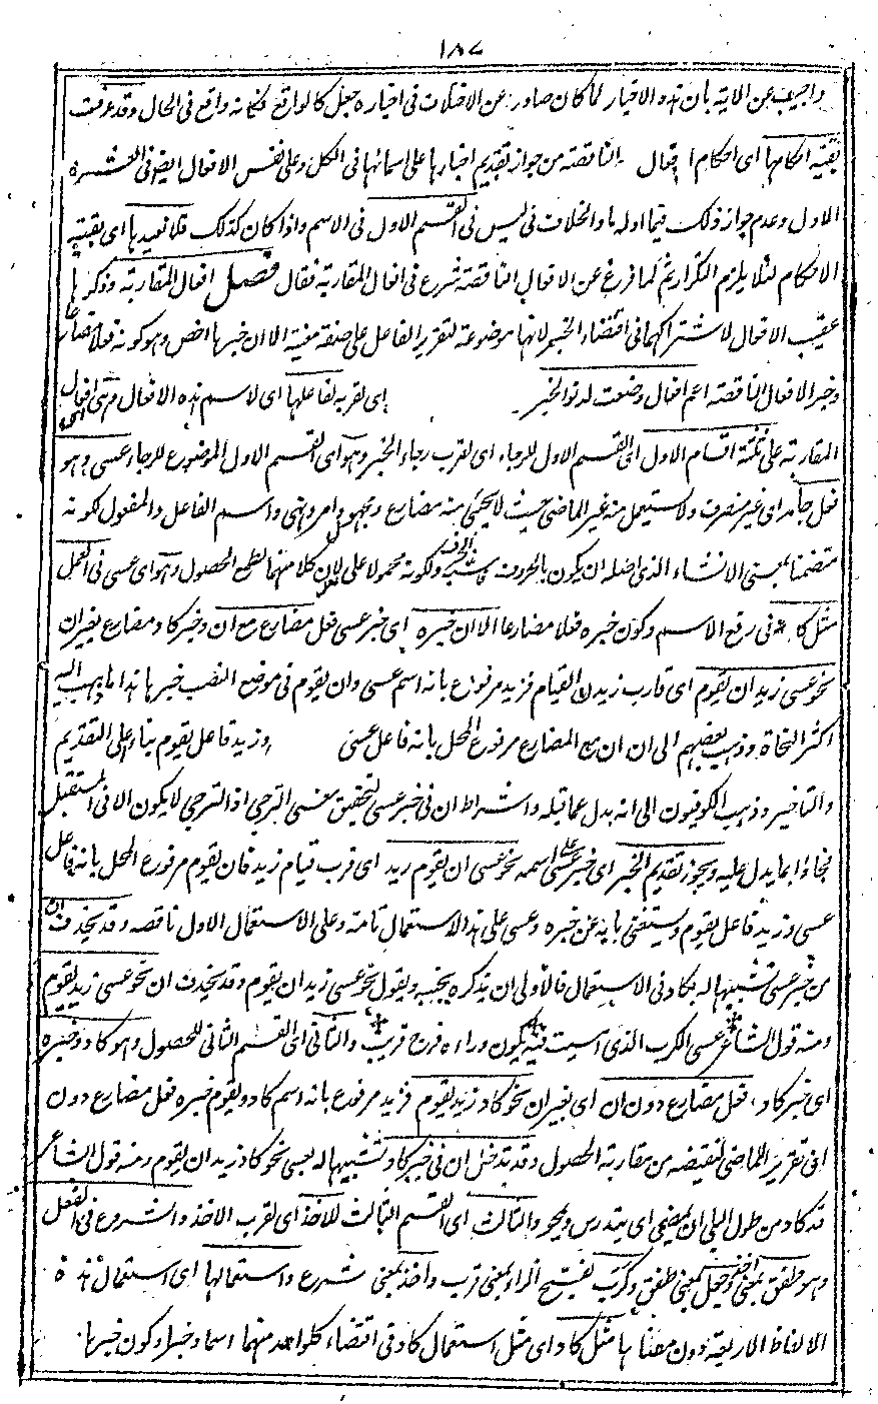 ١٨٧
واجيب عن الاية بان هذه الاخبار لما كان صادرا عن الاختلاف فى اخباره جعل كالواقع فكانه واقع فى الحال وقد عرفت
بقية احكامها اى احكام الافعال الناقصة من جواز تقديم اخبارها على اسمائها فى الكل وعلى نفس الافعال ايضا فى العشرة
الاول وعدم جواز ذلك فيما اوله ما والخلاف فى ليس فى القسم الاول فى الاسم واذا كان كذلك فلا نعيدها اى بقية
الاحكام لئلا يلزم التكرار ثم لما فرغ عن الافعال الناقصة شرع فى افعال المقاربة فقال فصل افعال المقاربة وذكرها
عقيب الافعال لاشتراكهما فى اقتضاء الخبر لانها موضوعة لتقرير الفاعل على صفة معينة الا ان خبرها اخص وهو كونه فعلا مضارعا
وخبر الافعال الناقصة اعم افعال وضعت لدنو الخبر اى لقربه لفاعلها اى لاسم هذه الافعال وهى اى افعال
المقاربة على ثلثة اقسام الاول اى القسم الاول للرجاء اى لقرب رجاء الخبر وهو اى القسم الاول الموضوع للرجاء عسى وهو
فعل جامد اى غير منصرف ولا يستعمل منه غير الماضى حيث لا يجئ منه مضارع ومجهول وامر ونهى واسم الفاعل والمفعول لكونه
متضمنا لمعنى الانشاء الذى اصله ان يكون بالحروف فاشبه الحرف ولكونه محمولا على لعل لان كلا منهما لطمع الحصول وهو اى عسى فى العمل
مثل كاد فى رفع الاسم وكون خبره فعلا مضارعا الا ان خبره اى خبر عسى فعل مضارع مع ان وخبر كاد مضارع بغير ان
نحو عسى زيد ان يقوم اى قارب زيد ن القيام فزيد مرفوع بانه اسم عسى وان يقوم فى موضع النصب خبرها هذا ما ذهب اليه
اكثر النحاة وذهب بعضهم الى ان ان مع المضارع مرفوع المحل بانه فاعل عسى وزيد فاعل يقوم بناء على التقديم
والتاخير وذهب الكوفيون الى انه بدل عما قبله واشتراط ان فى خبر عسى لتحقيق معنى الترجى اذ الترجى لا يكون الا فى المستقبل
فجاؤا بما يدل عليه ويجوز تقديم الخبر اى خبر عسى على اسمه نحو عسى ان يقوم زيد اى قرب قيام زيد فان يقوم مرفوع المحل بانه فاعل
عسى وزيد فاعل يقوم ويستغنى بانه عن خبره وعسى على هذا الاستعمال تامة وعلى الاستعمال الاول ناقصه وقد يحذف ان
من خبر عسى تشبيها له بكاد فى الاستعمال فالاولى ان يذكره بجنبه ويقول نحو عسى زيد ان يقوم وقد يحذف ان نحو عسى زيد يقوم
ومنه قول الشاعر عسى الكرب الذى امسيت فيه * يكون وراءه فرج قريب * والثانى اى القسم الثانى للحصول وهو كاد وخبره
اى خبر كاد فعل مضارع دون ان اى بغير ان نحو كاد زيد يقوم فزيد مرفوع بانه اسم كاد ويقوم خبره فعل مضارع دون
ان تقرير الماضى لنقيضه من مقاربة الحصول وقد تدخل ان فى خبر كاد تشبيها له بعسى نحو كاد زيد ان يقوم ومنه قول الشاعر
قد كاد من طول البلى ان يمضى اى يندرس ويمحو والثالث اى القسم الثالث للاخذ اى لقرب الاخذ والشروع فى الفعل
وهو طفق بمعنى اخذ وجعل بمعنى طفق وكرب بفتح الراء بمعنى قرب واخذ بمعنى شرع واستعمالها اى استعمال هذه
الالفاظ الاربعة دون معناها مثل كاد اى مثل استعمال كاد فى اقتضاء كل واحد منهما اسما وخبرا وكون خبرها